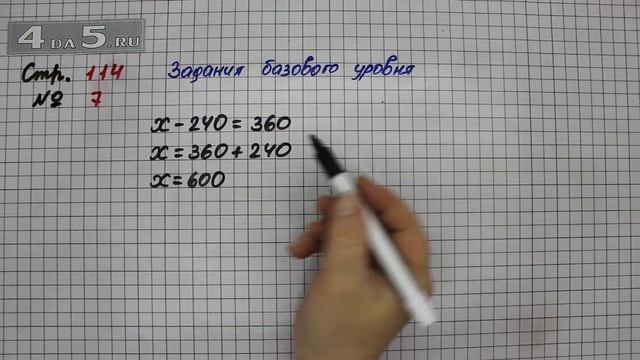 4DA5.RU
Стр. 114 Задания базового уровня
№ 7
x - 240 = 360
x = 360 + 240
x = 600